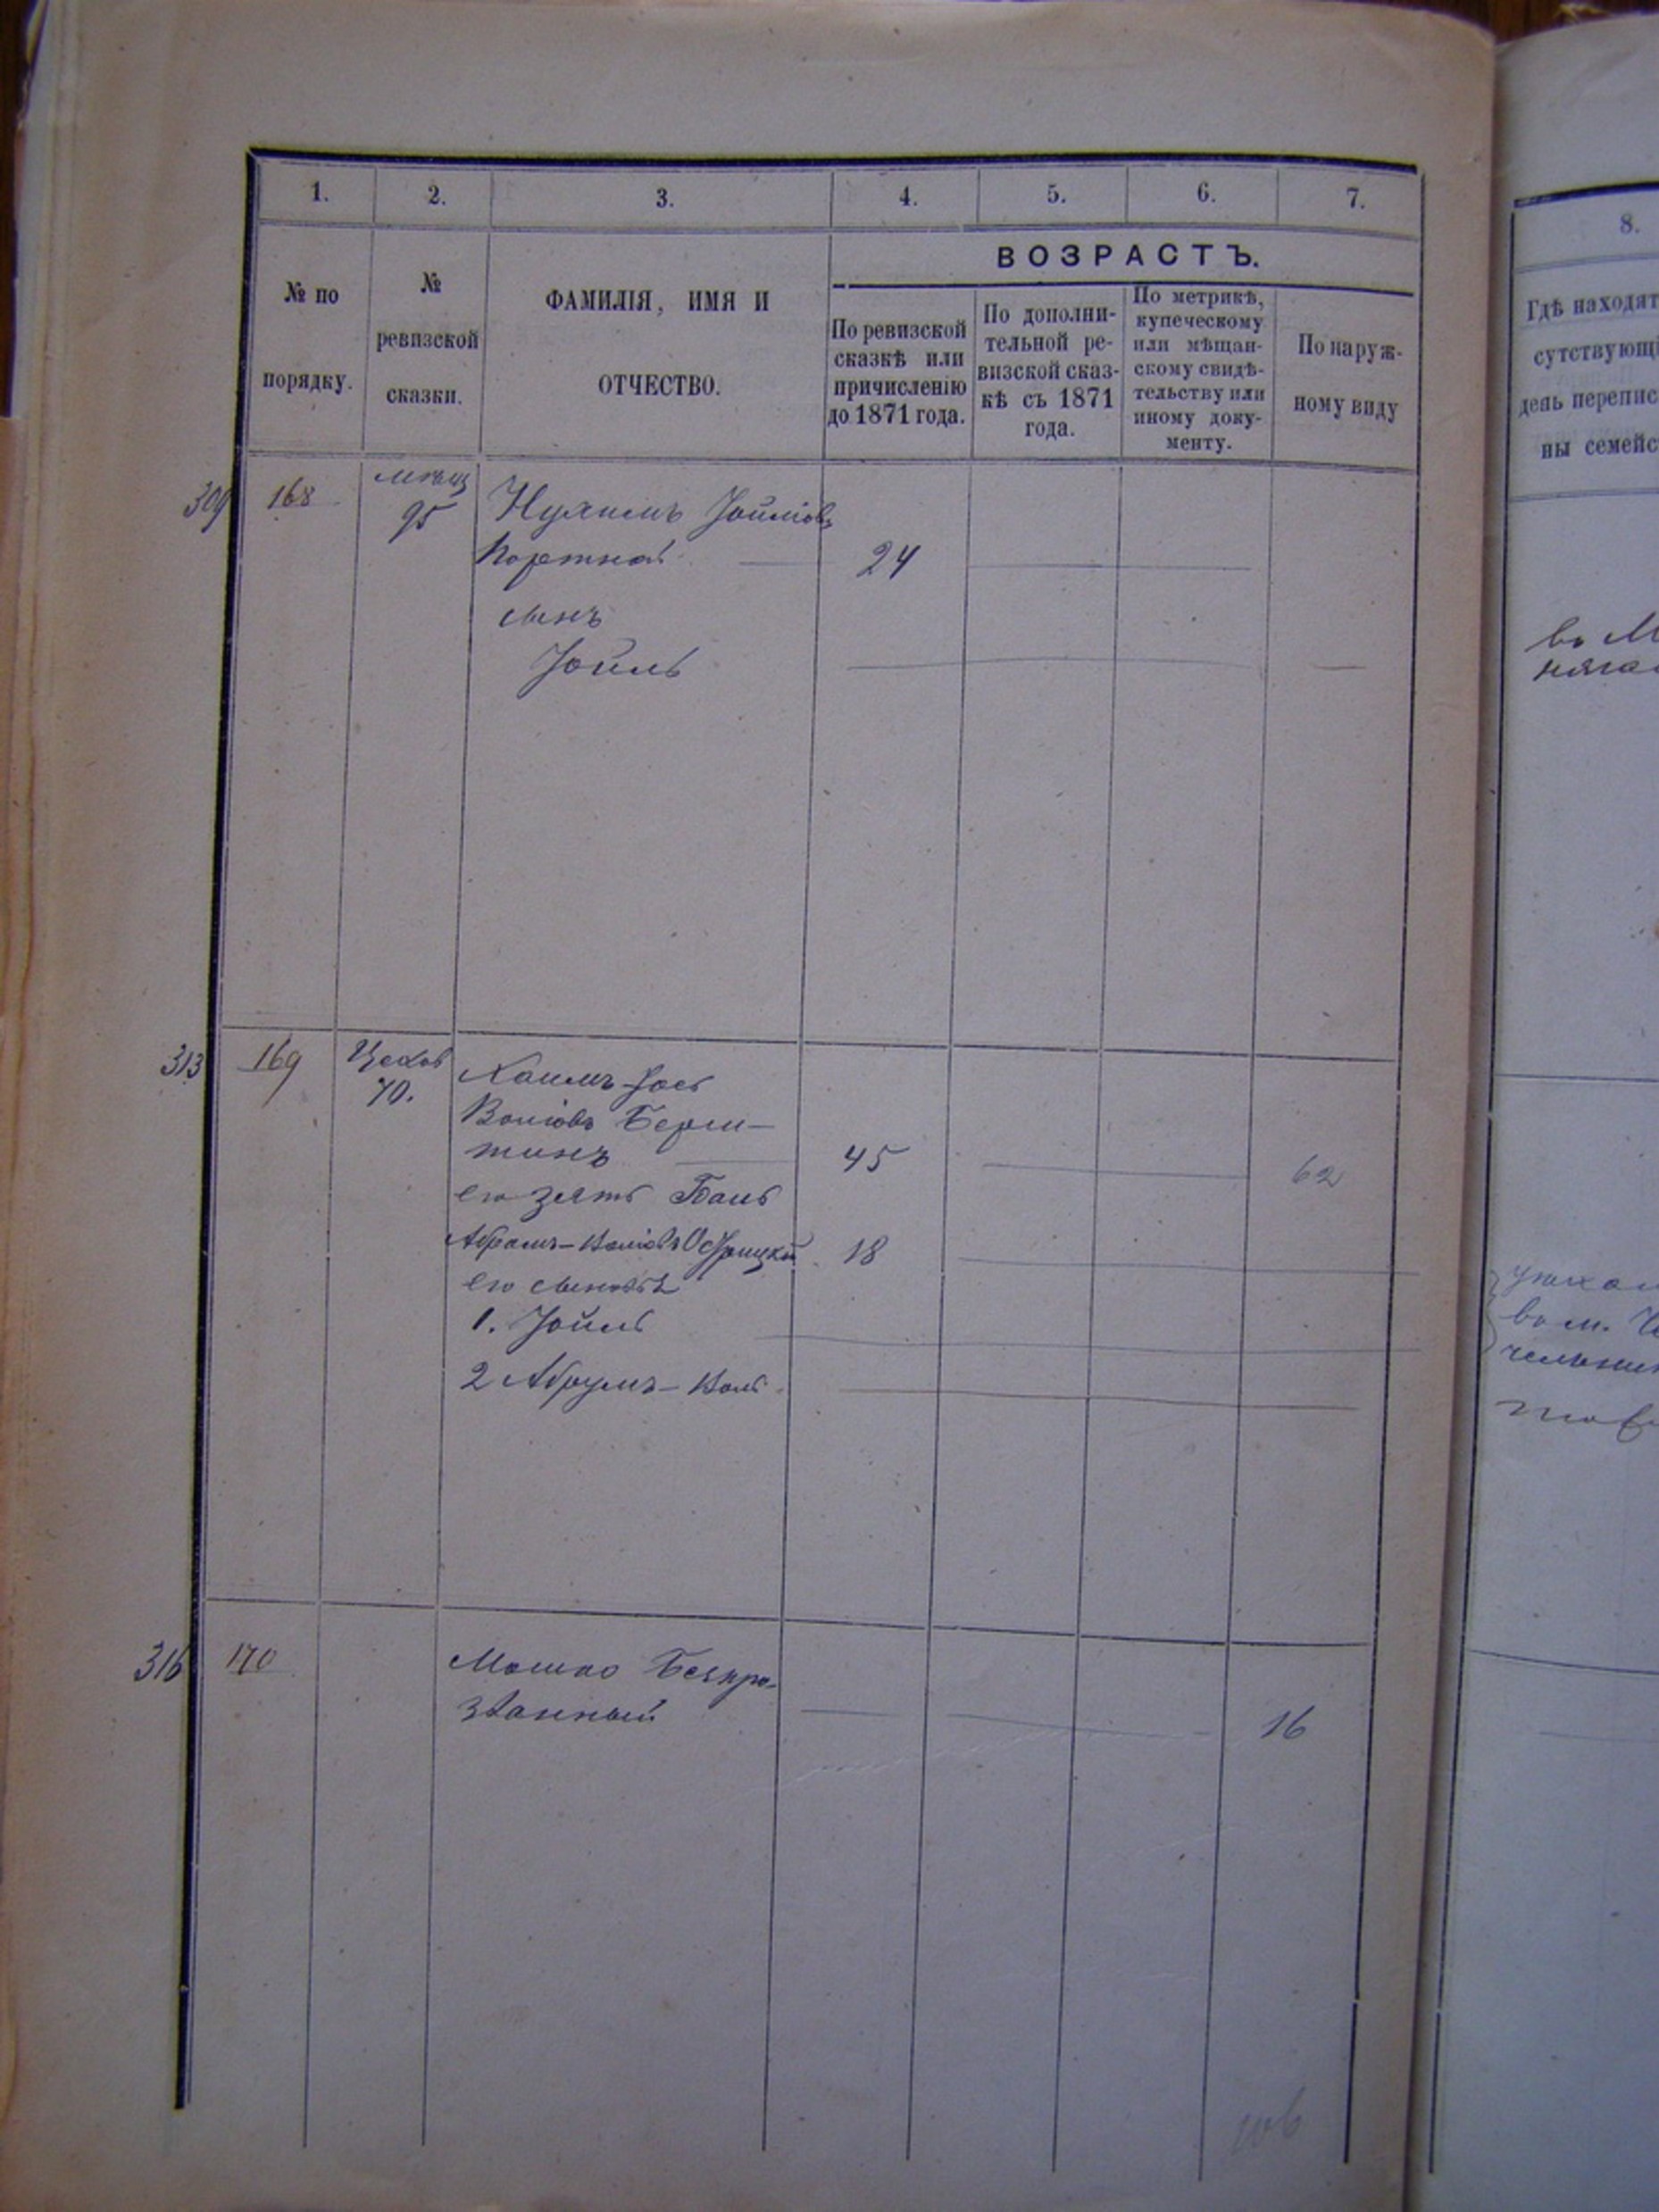 1. 2. 3. 4. 5. 6. 7.
ВОЗРАСТЪ.
№ по
порядку.
№
ревизской
сказки.
ФАМИЛІЯ, ИМЯ И
ОТЧЕСТВО.
По ревизской
сказкѣ или
причисленію
до 1871 года.
По дополни-
тельной ре-
визской сказ-
кѣ съ 1871
года.
По метрикѣ,
купеческому
или мѣщан-
скому свидѣ-
тельству или
иному доку-
менту.
По наруж-
ному виду
309 168 мѣщ
95
Нухимъ Іойліовъ
Портной 24
сынъ
Іойль
313 169 Цехов
70.
Хаимъ-Іось
Воліовъ Берш-
тинъ 45 62
его зять
Абрамъ-Воліовъ 18
его сыновья
1. Іойль
2 Абрумъ-Воль
316 170
Мошко Безпро-
званный 16
106
8.
Гдѣ находят
сутствующі
день перепис
ны семейс
въ М